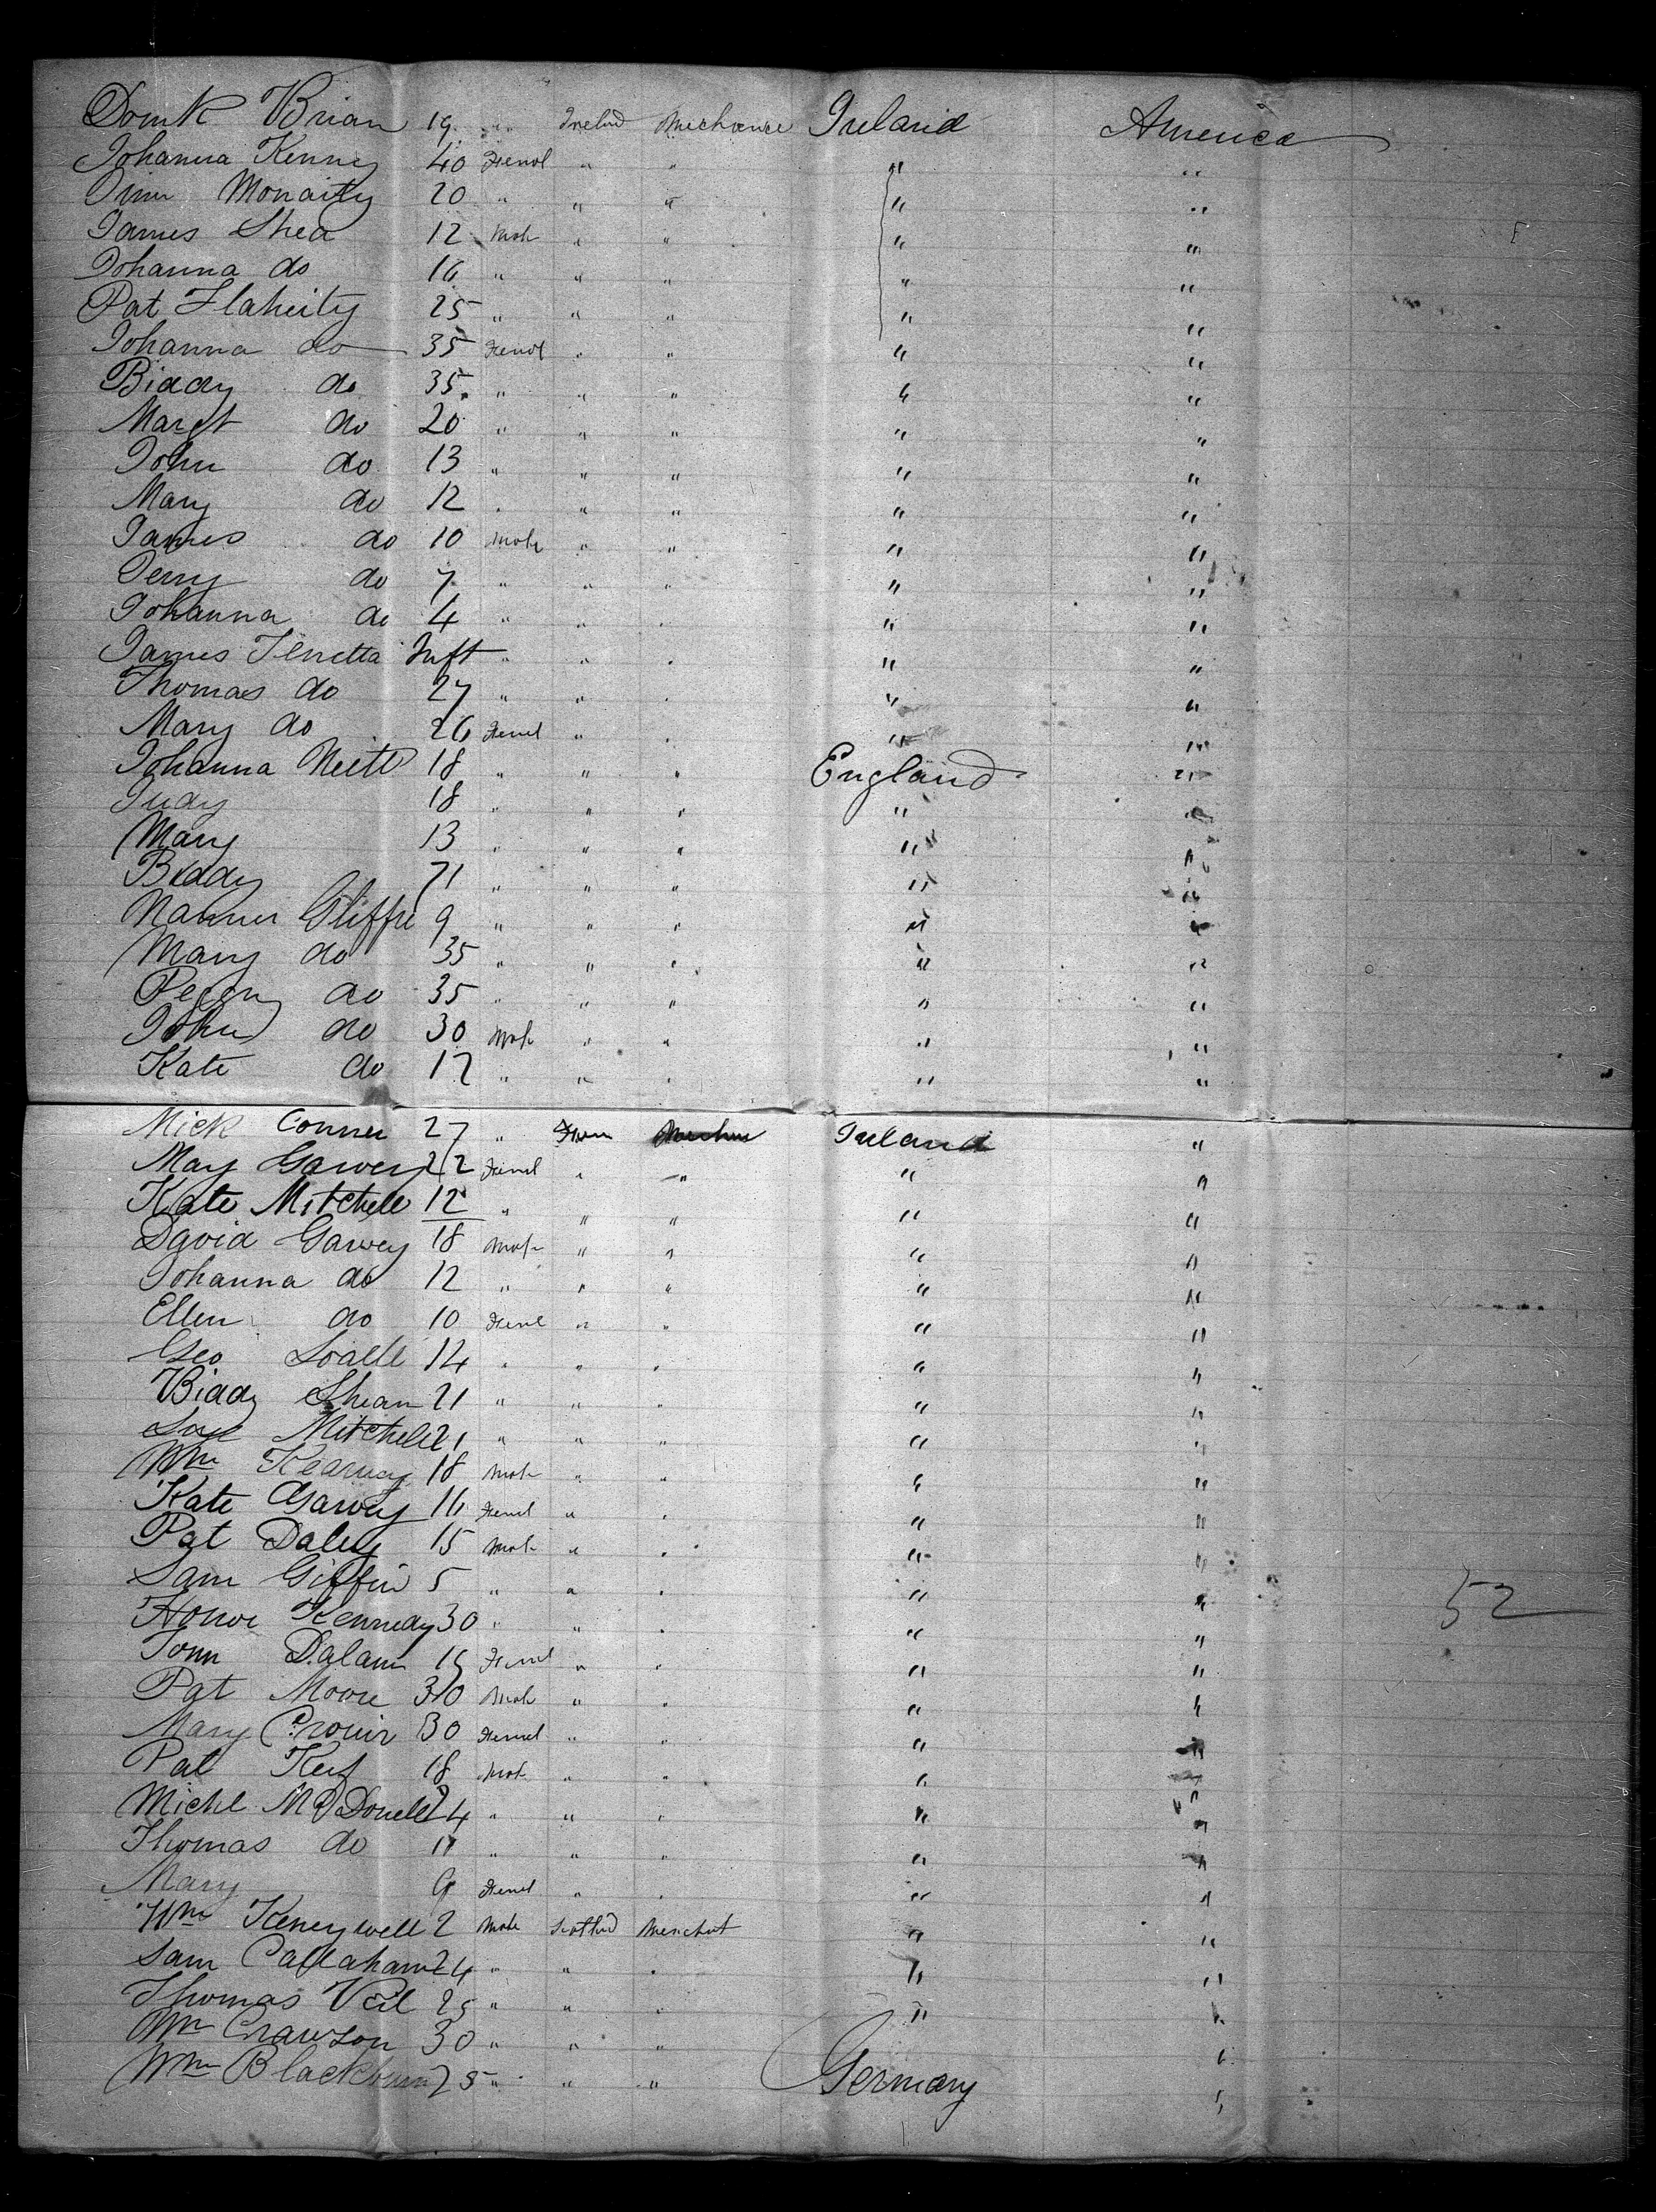 Domk Brian 19 " Ireland Mechanic Ireland America
Johanna Kenny 40 Femal " " " "
20 " " " " "
James Shea 12 Male " " " "
Johanna do 16 " " " " "
Pat Flaherty 25 " " " " "
Johanna do 35 Femal " " " "
Biddy do 35 " " " " "
Margt do 20 " " " " "
John do 13 " " " " "
Mary do 12 " " " " "
James do 10 Male " " " "
Jerry do 7 " " " " "
Johanna do 4 " " " " "
James Inft " " " " "
Thomas do 27 " " " " "
Mary do 26 Femal " " " "
Johanna 18 " " " England "
Judy 18 " " " " "
Mary 13 " " " " "
Biddy 71 " " " " "
9 " " " " "
Mary do 35 " " " " "
Peggy do 35 " " " " "
John do 30 Male " " " "
Kate do 17 " " " " "
Mick Conner 27 " Ireland "
Mary Garvey 22 Femal " " " "
Kate Mitchell 12 " " " " "
David Garvey 18 Male " " " "
Johanna do 12 " " " " "
Ellen do 10 Femal " " " "
Geo 14 " " " " "
Biddy Shean 21 " " " " "
Mitchell 21 " " " " "
Wm Kearney 18 Male " " " "
Kate Garvey 16 Femal " " " "
Pat Daley 15 Male " " " "
Sam Giffin 5 " " " " "
Kennedy 30 " " " " " 52
Femal " " " "
Pat Moore 30 Male " " " "
Mary 30 Femal " " " "
Pat 18 Male " " " "
Michl McDonell 24 " " " " "
Thomas do 11 " " " " "
Mary 9 Femal " " " "
Wm 2 Male Scotlnd Merchnt " "
Sam Callaham 24 " " " " "
Thomas 25 " " " " "
Wm Crawson 30 " " " "
Wm Blackburn 25 " " " Germany "